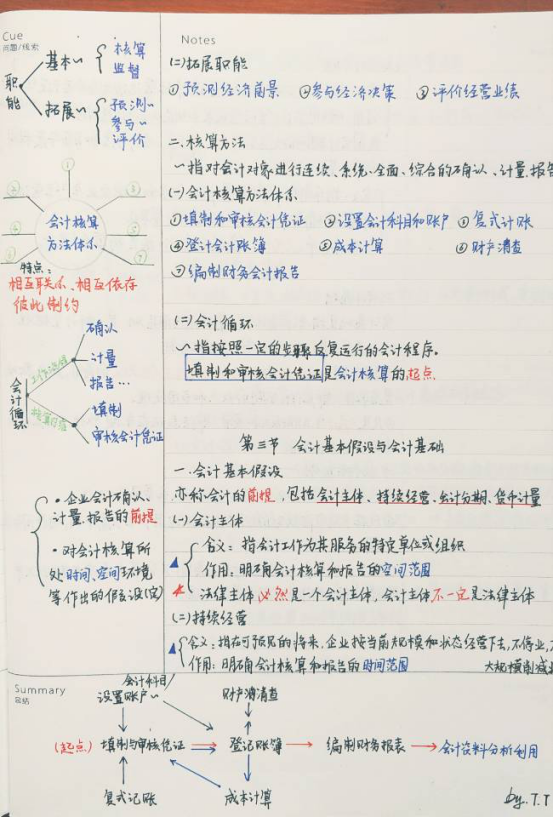 Cue
问题/线索
职能
基本~
核算
监督
拓展~
预测~
参与~
评价
会计核算
方法体系
特点:
相互联系、相互依存
彼此制约
会计循环
确认
计量
报告…
填制
审核会计凭证
• 企业会计确认、
计量、报告的前提
• 对会计核算所
处时间、空间环境
等作出的假设(定)
Notes
(二)拓展职能
①预测经济前景 ②参与经济决策 ③评价经营业绩
二.核算方法
~指对会计对象进行连续、系统、全面、综合的确认、计量、报告
(一)会计核算方法体系
①填制和审核会计凭证 ②设置会计科目和账户 ③复式计账
④登计会计账簿 ⑤成本计算 ⑥财产清查
⑦编制财务会计报告
(二)会计循环
~指按照一定的步骤反复运行的会计程序。
填制和审核会计凭证是会计核算的起点.
第三节 会计基本假设与会计基础
一.会计基本假设
亦称会计的前提,包括会计主体、持续经营、会计分期、货币计量
(一)会计主体
含义:指会计工作为其服务的特定单位或组织
作用:明确会计核算和报告的空间范围
法律主体必然是一个会计主体,会计主体不一定是法律主体
(二)持续经营
含义:指在可预见的将来,企业按当前规模和状态经营下去,不停业,
作用:明确会计核算和报告的时间范围 大规模削减
Summary
总结
会计科目/
设置账户~ 财产清查
(起点) 填制与审核凭证 登记账簿 编制财务报表 会计资料分析利用
复式记账 成本计算
by.T.T